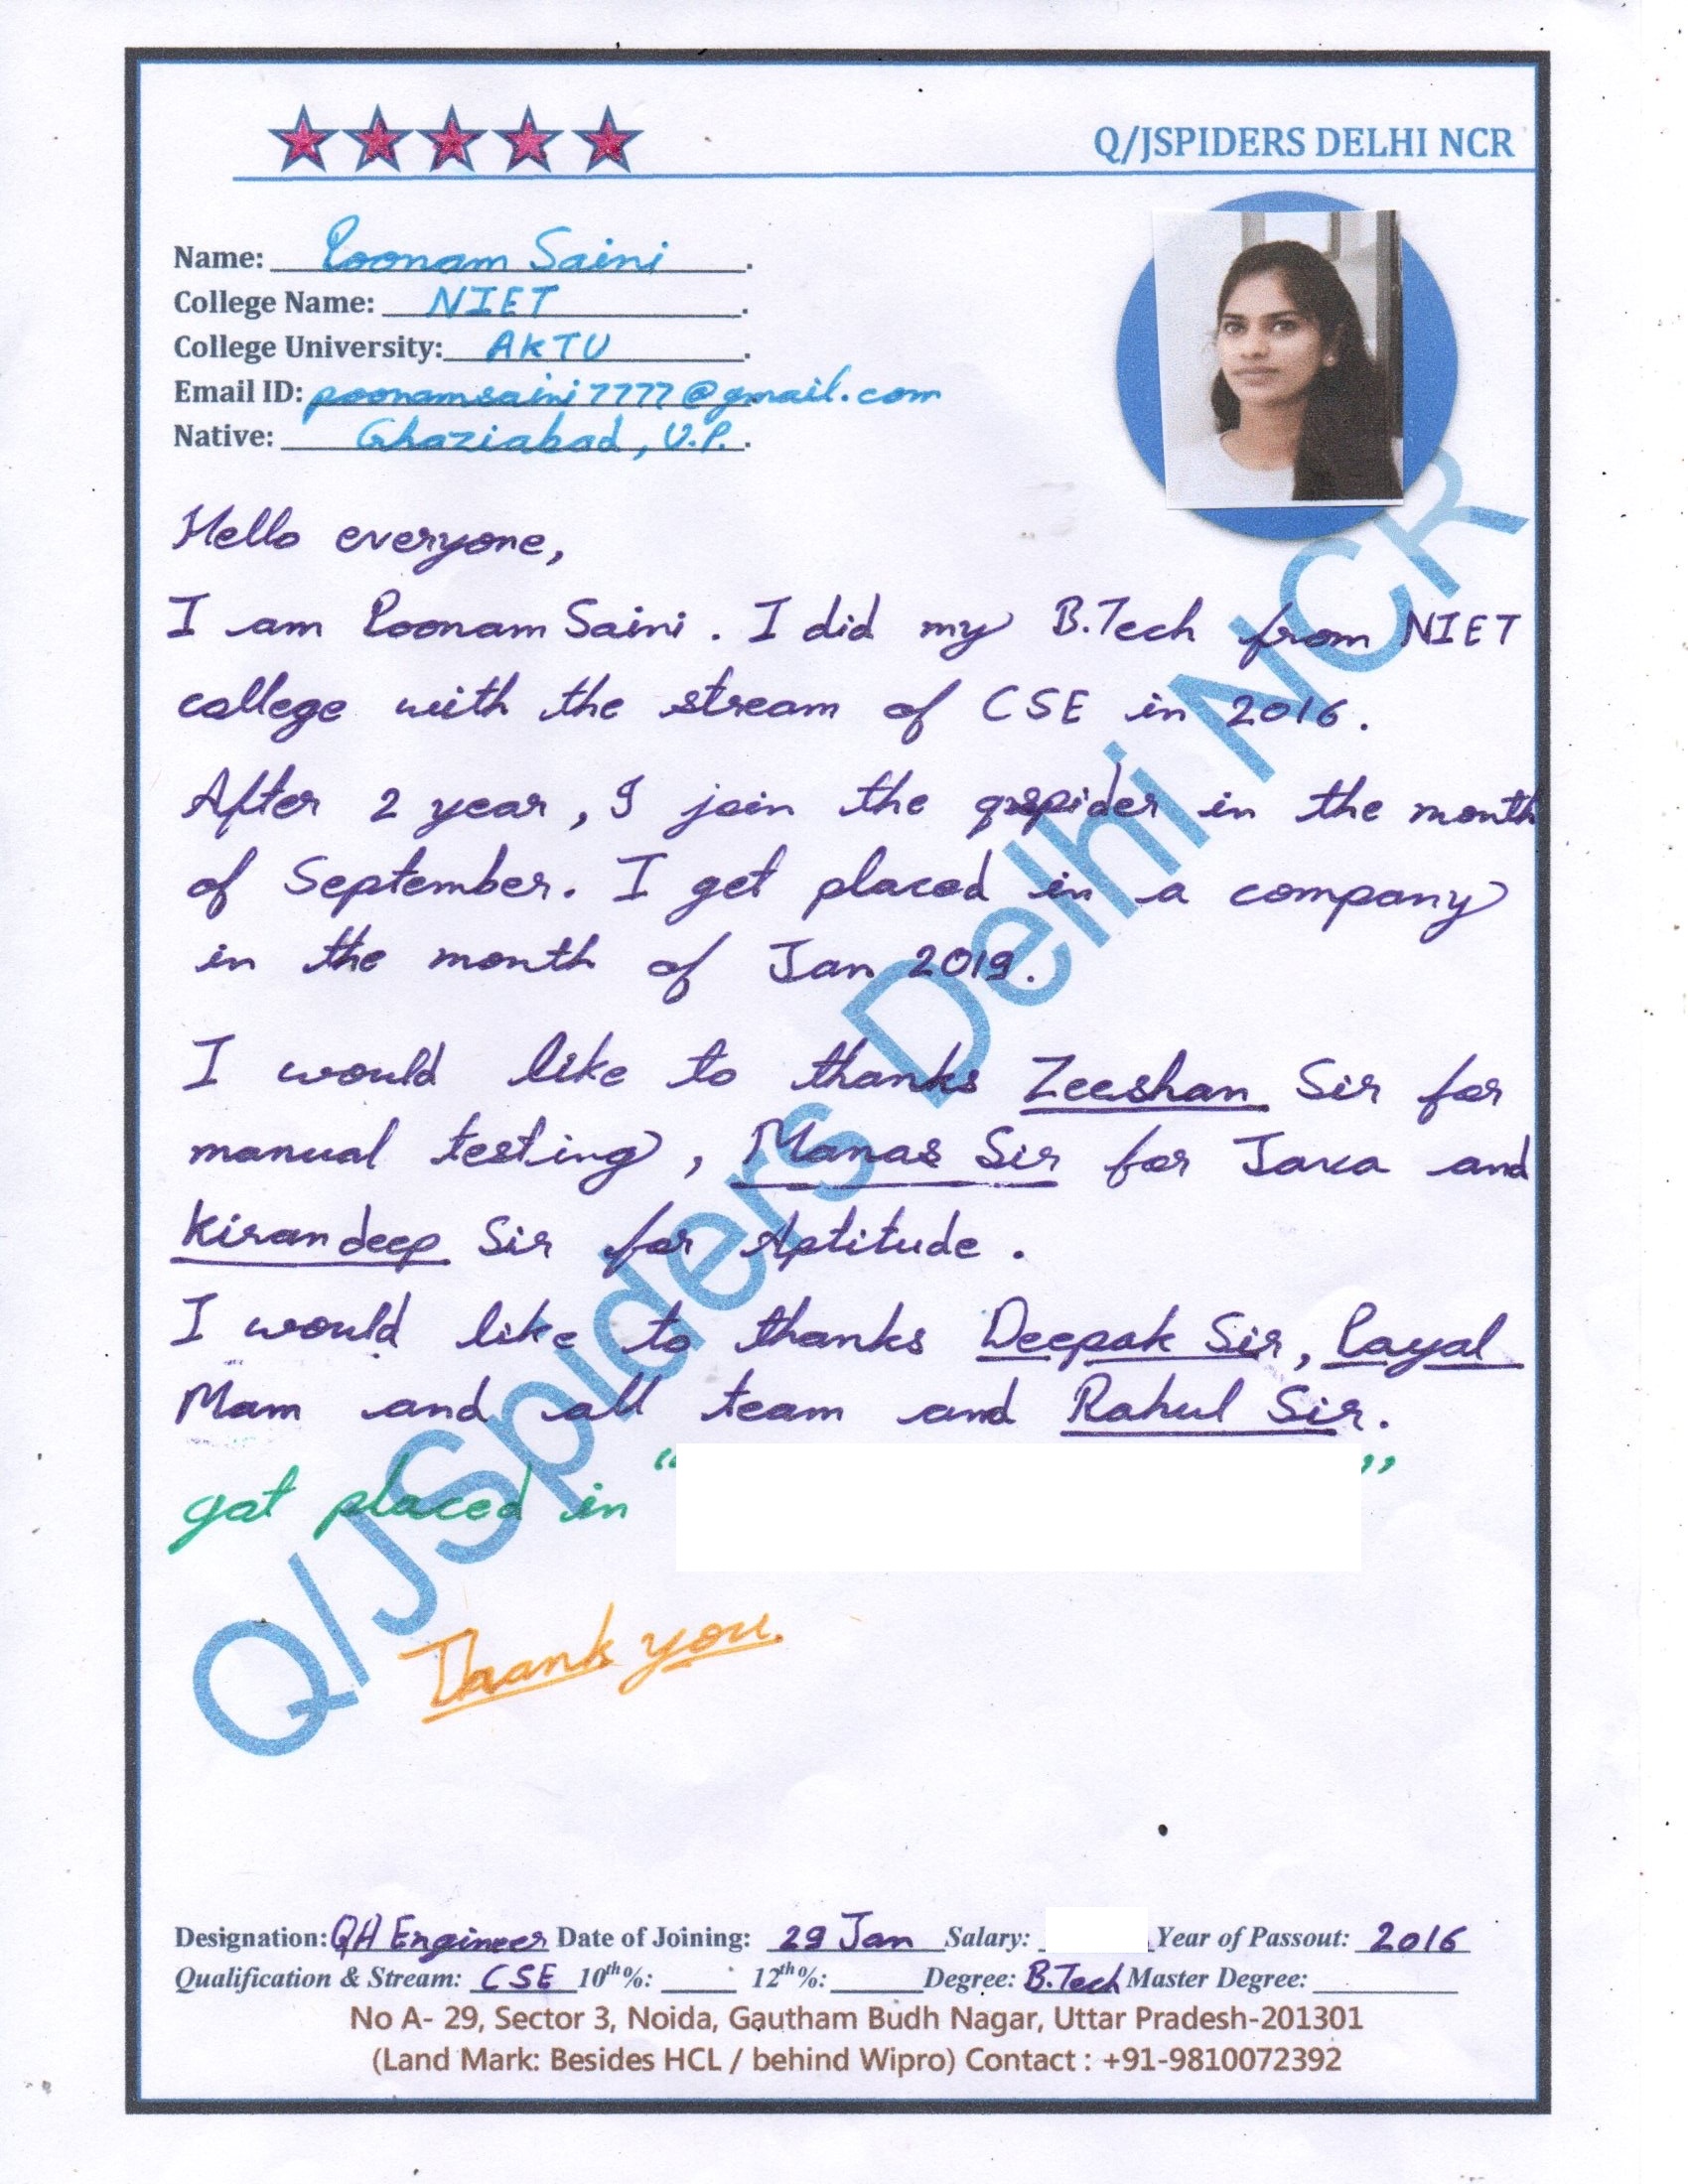 Q/JSPIDERS DELHI NCR
Name: Poonam Saini.
College Name: NIET.
College University: AKTU.
Email ID: poonamsaini7777@gmail.com
Native: Ghaziabad, U.P..
Hello everyone,
I am Poonam Saini. I did my B.Tech from NIET
college with the stream of CSE in 2016.
After 2 year, I join the qspider in the month
of September. I get placed in a company
in the month of Jan 2019.
I would like to thanks Zeeshan Sir for
manual testing, Manas Sir for Java and
Kirandeep Sir for Aptitude.
I would like to thanks Deepak Sir, Payal
Mam and all team and Rahul Sir.
got placed in “ ”
Thank you.
Q/JSpiders Delhi NCR
Designation: QA Engineer Date of Joining: 29 Jan Salary: Year of Passout: 2016
Qualification & Stream: CSE 10th%: 12th%: Degree: B.Tech Master Degree:
No A- 29, Sector 3, Noida, Gautham Budh Nagar, Uttar Pradesh-201301
(Land Mark: Besides HCL / behind Wipro) Contact : +91-9810072392